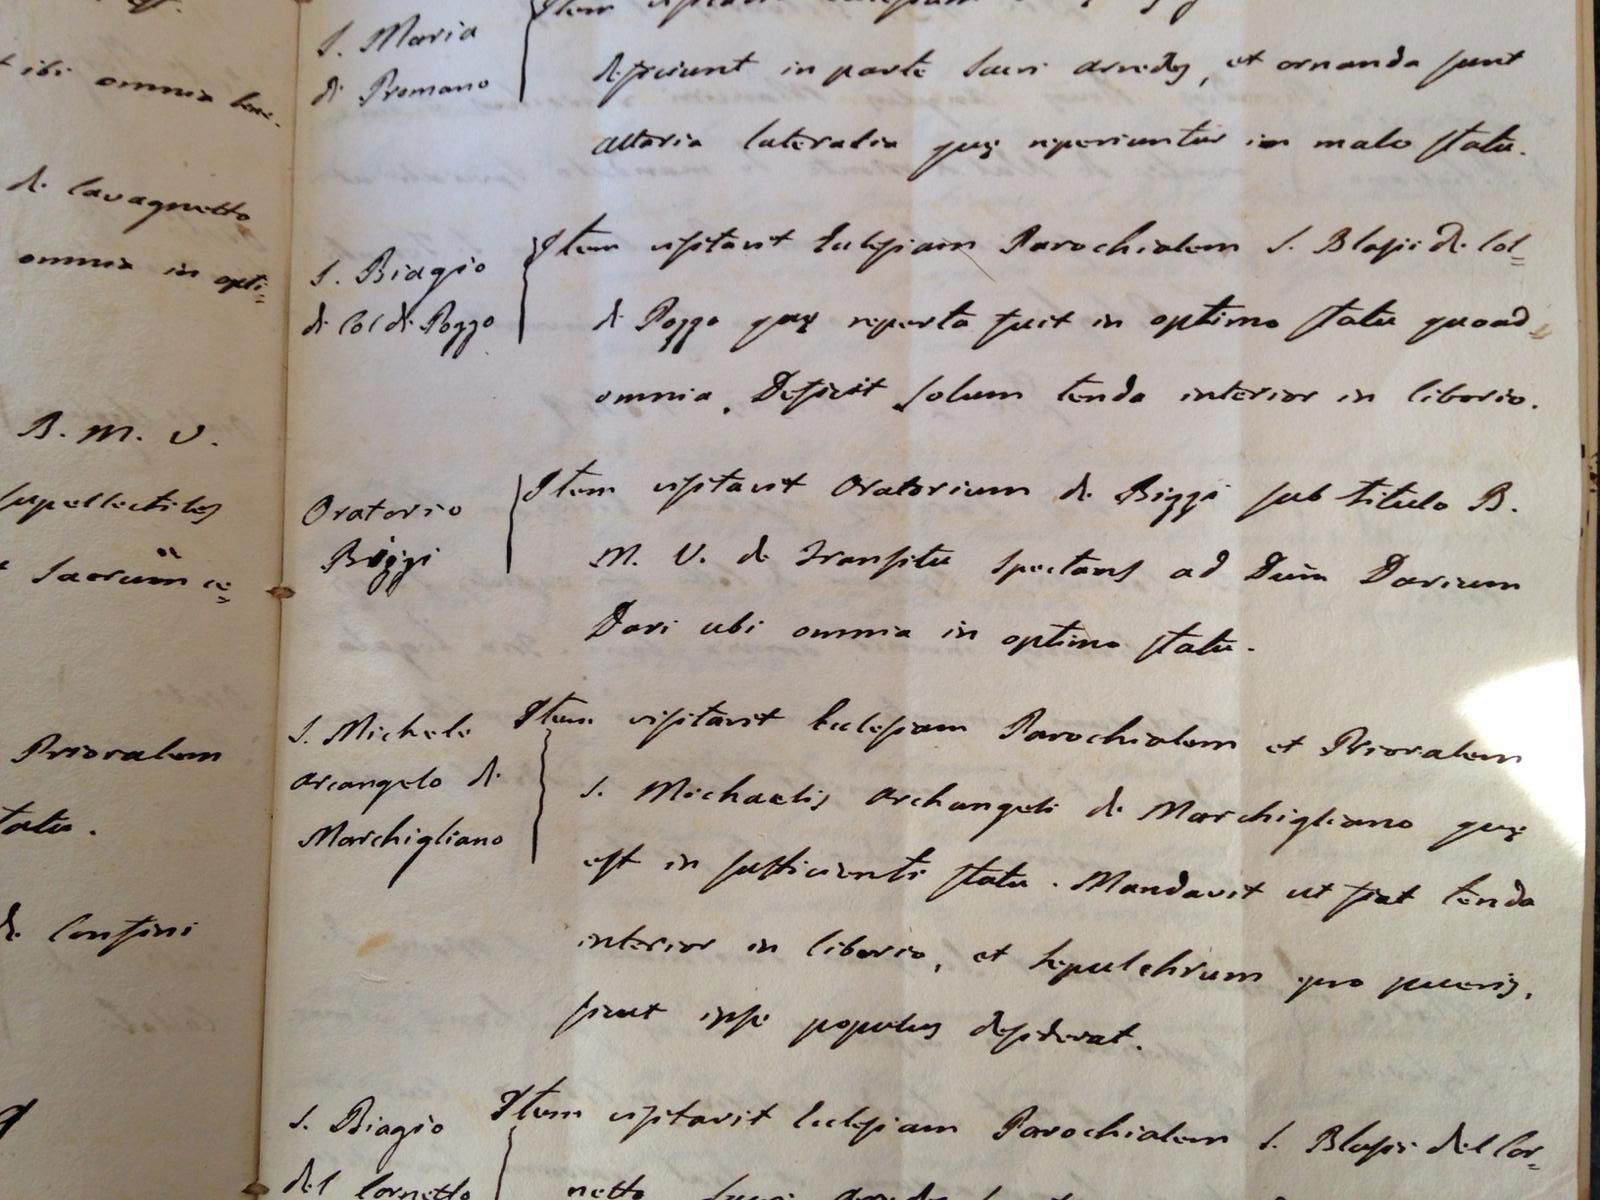 t ibi omnia bene-
di Cavagnetto
omnia in opti=
B. M. V.
supellectiles
Sacrum ce=
Prioralem
statu.
di Confini
S. Maria
di Promano
Item visitavit Ecclesiam
deficiunt in parte Sacri arredes, et ornanda sunt
altaria lateralia quę reperiuntur in malo statu.
S. Biagio
di Col di Pozzo
Item visitavit Ecclesiam Parochialem S. Blasii di Col=
di Pozzo quę reperta fuit in optimo statu quoad
omnia. Deficit solum tenda interior in liborio.
Oratorio
Bizzi
Item visitavit Oratorium di Bizzi sub titulo B.
M. V. de Transitu spectans ad Dum̃ Darium
Dari ubi omnia in optimo statu.
S. Michele
Arcangelo di
Marchigliano
Item visitavit Ecclesiam Parochialem et Prioralem
S. Michaelis Archangeli di Marchigliano quę
est in sufficienti statu. Mandavit ut fiat tenda
interior in liborio, et sepulchrum pro pueris,
sicut ipse populus desiderat.
S. Biagio
del Cornetto
Item visitavit Ecclesiam Parochialem S. Blasii del Cor=
netto Sacri